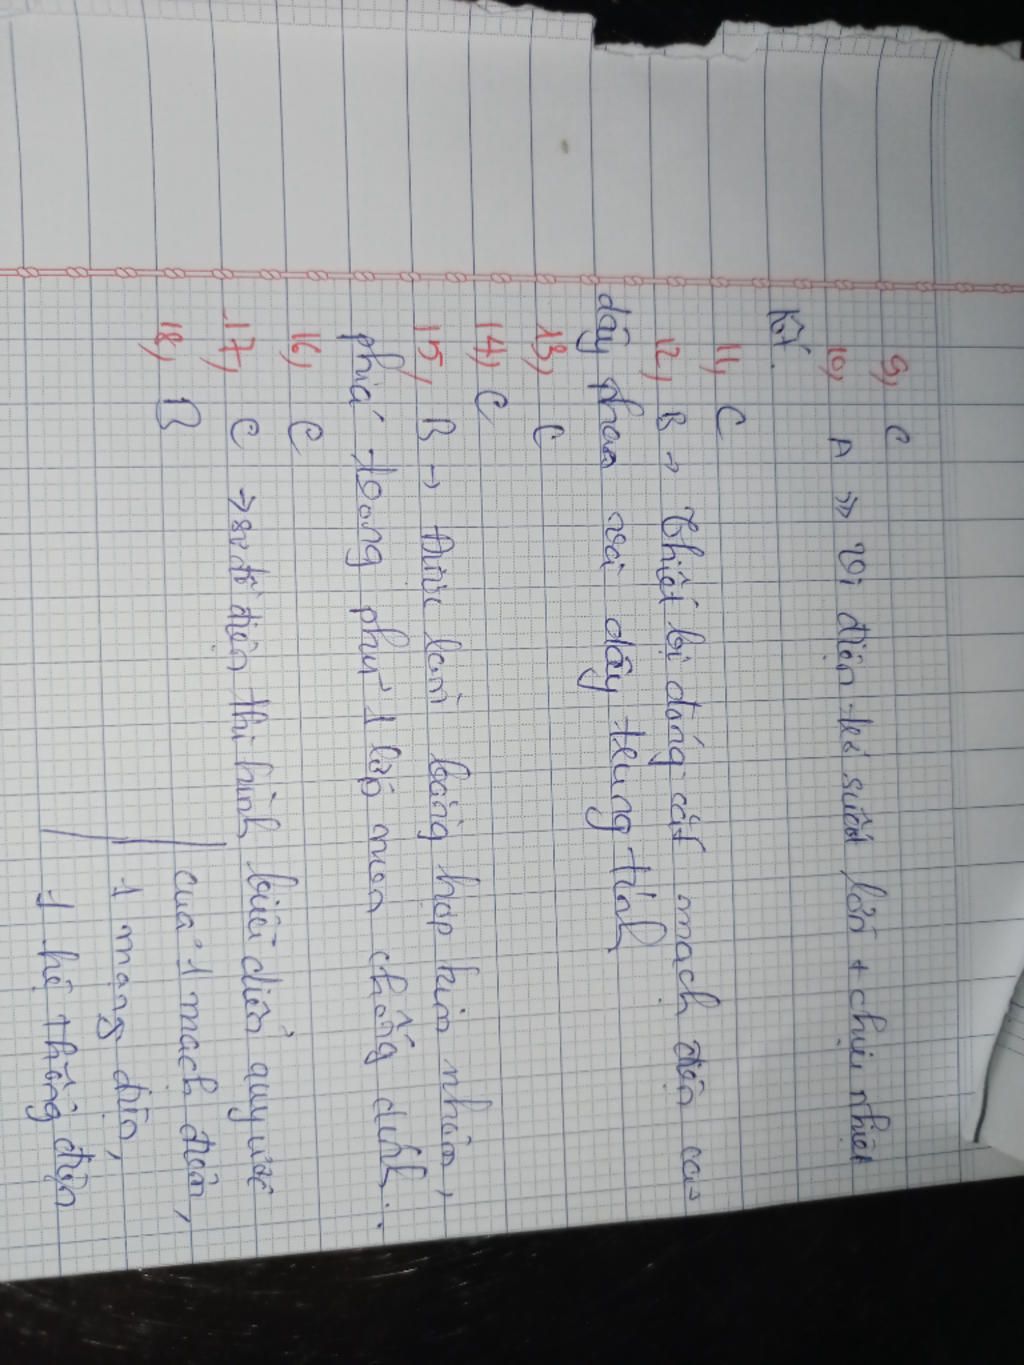 9, C
10, A => Vì điện trở suất lớn + chịu nhiệt
tốt.
11, C
12, B → thiết bị đóng cắt mạch điện cả
dây pha và dây trung tính
13, C
14, C
15, B → Được làm bằng hợp kim nhôm,
phía trong phủ 1 lớp men chống dính.
16, C
17, C → sơ đồ điện thì hình biểu diễn quy ước
của 1 mạch điện,
1 mạng điện,
1 hệ thống điện
18, B